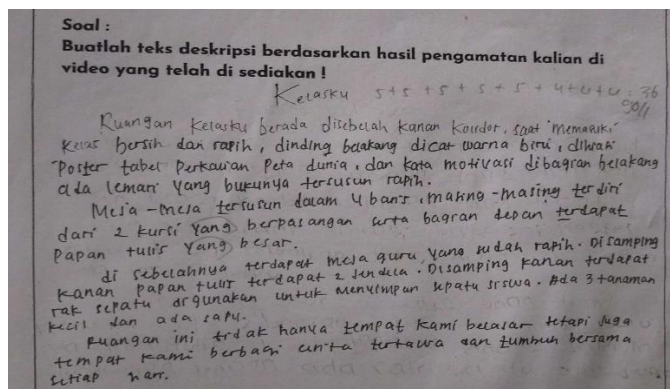 Soal :
Buatlah teks deskripsi berdasarkan hasil pengamatan kalian di
video yang telah di sediakan !
Kelasku 5+5+5+5+5+4+4+4 = 36
90//
Ruangan kelasku berada disebelah kanan koridor, saat memasuki
kelas bersih dan rapih, dinding belakang dicat warna biru,
Poster tabel Perkalian Peta dunia, dan kata motivasi dibagian belakang
ada lemari yang bukunya tersusun rapih.
Meja-meja tersusun dalam 4 baris, masing-masing terdiri
dari 2 kursi yang berpasangan serta bagian depan terdapat
Papan tulis yang besar.
di sebelahnya terdapat meja guru yang sudah rapih. Disamping
kanan papan tulis terdapat 2 jendela. Disamping kanan terdapat
rak sepatu digunakan untuk menyimpan sepatu siswa. Ada 3 tanaman
kecil dan ada sapu.
Ruangan ini tidak hanya tempat kami belajar tetapi juga
tempat kami berbagi cerita tertawa dan tumbuh bersama
setiap hari.